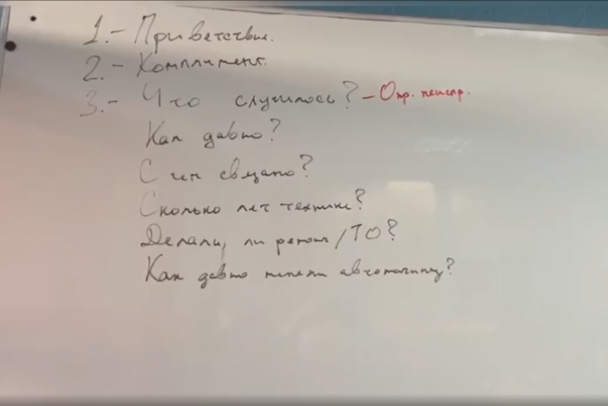 1.- Приветствие.
2.- Комплимент.
3.- Что случилось? - Опр. неиспр.
Как давно?
С чем связано?
Сколько лет технике?
Делали, ли ремонт/ТО?
Как давно меняли автоматику?